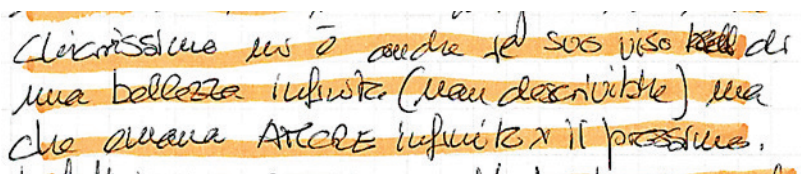 Chiarissimo mi è anche il suo viso di
una bellezza infinita (non descrivibile) ma
che emana AMORE infinito x il prossimo.